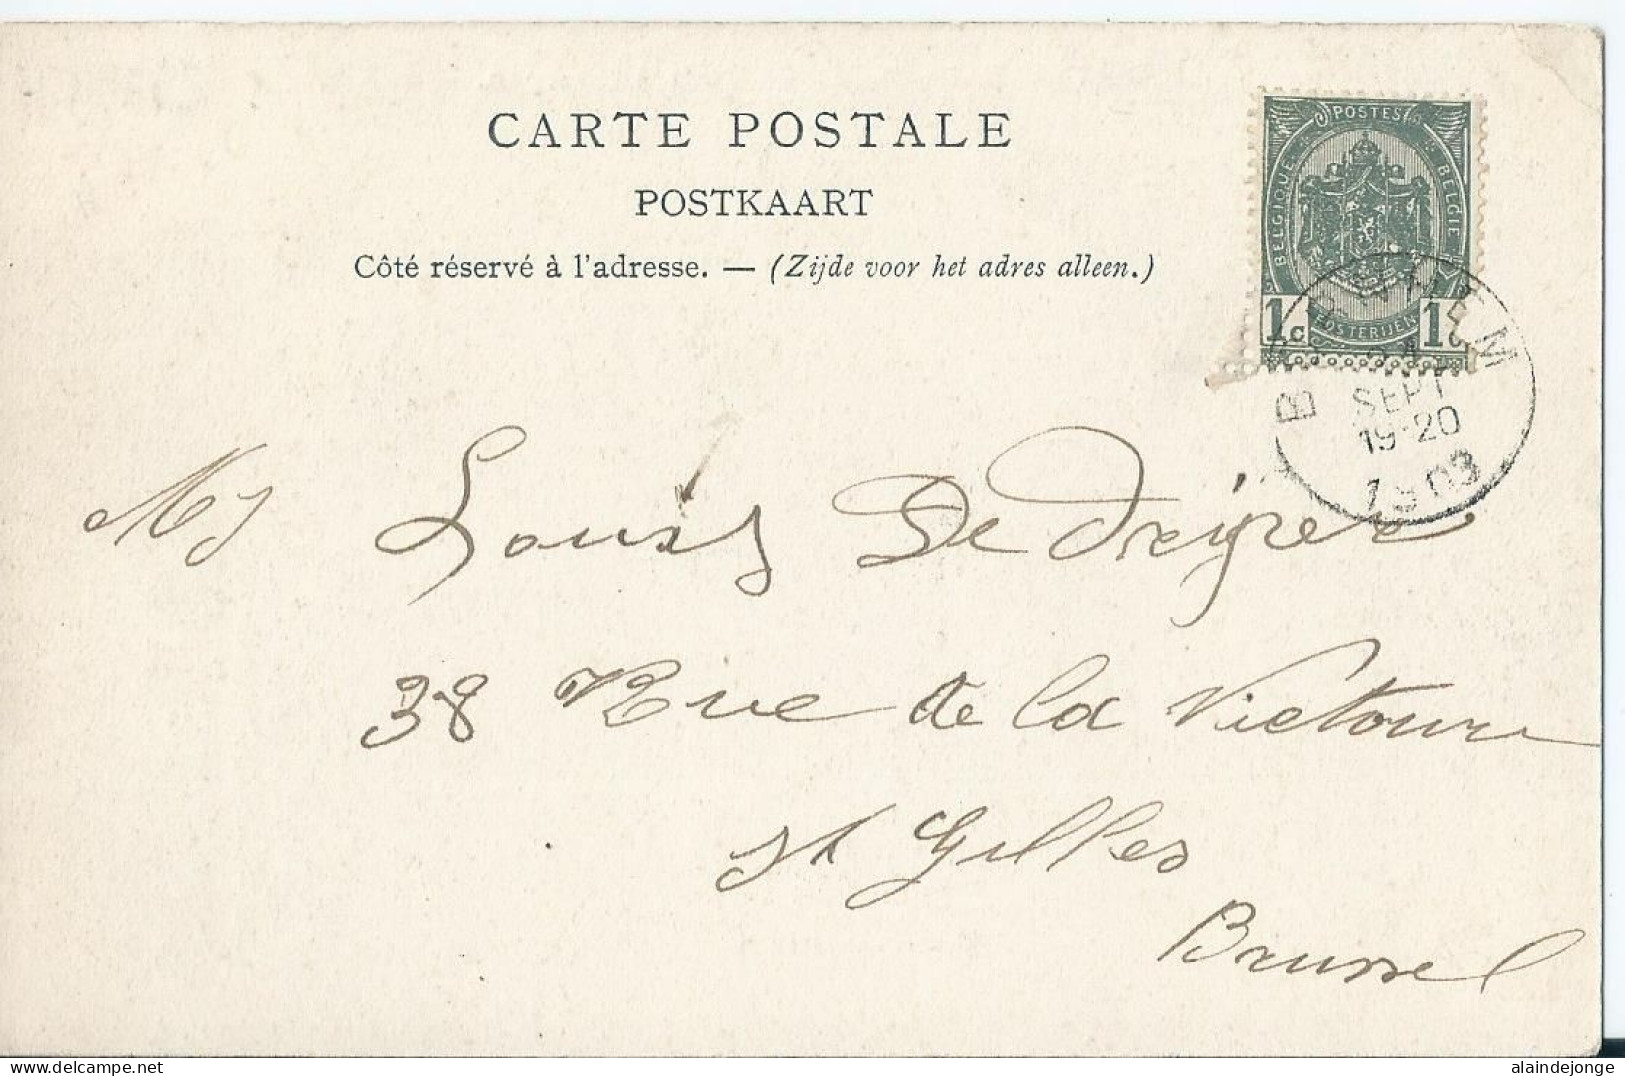 CARTE POSTALE
POSTKAART
Côté réservé à l'adresse. — (Zijde voor het adres alleen.)
POSTES
BELGIQUE
BELGIE
POSTERIJEN
1c 1c
SEPT
19-20
1903
Mr Louis De
38 Rue de la Victoire
St Gilles
Brussel
alaindejonge